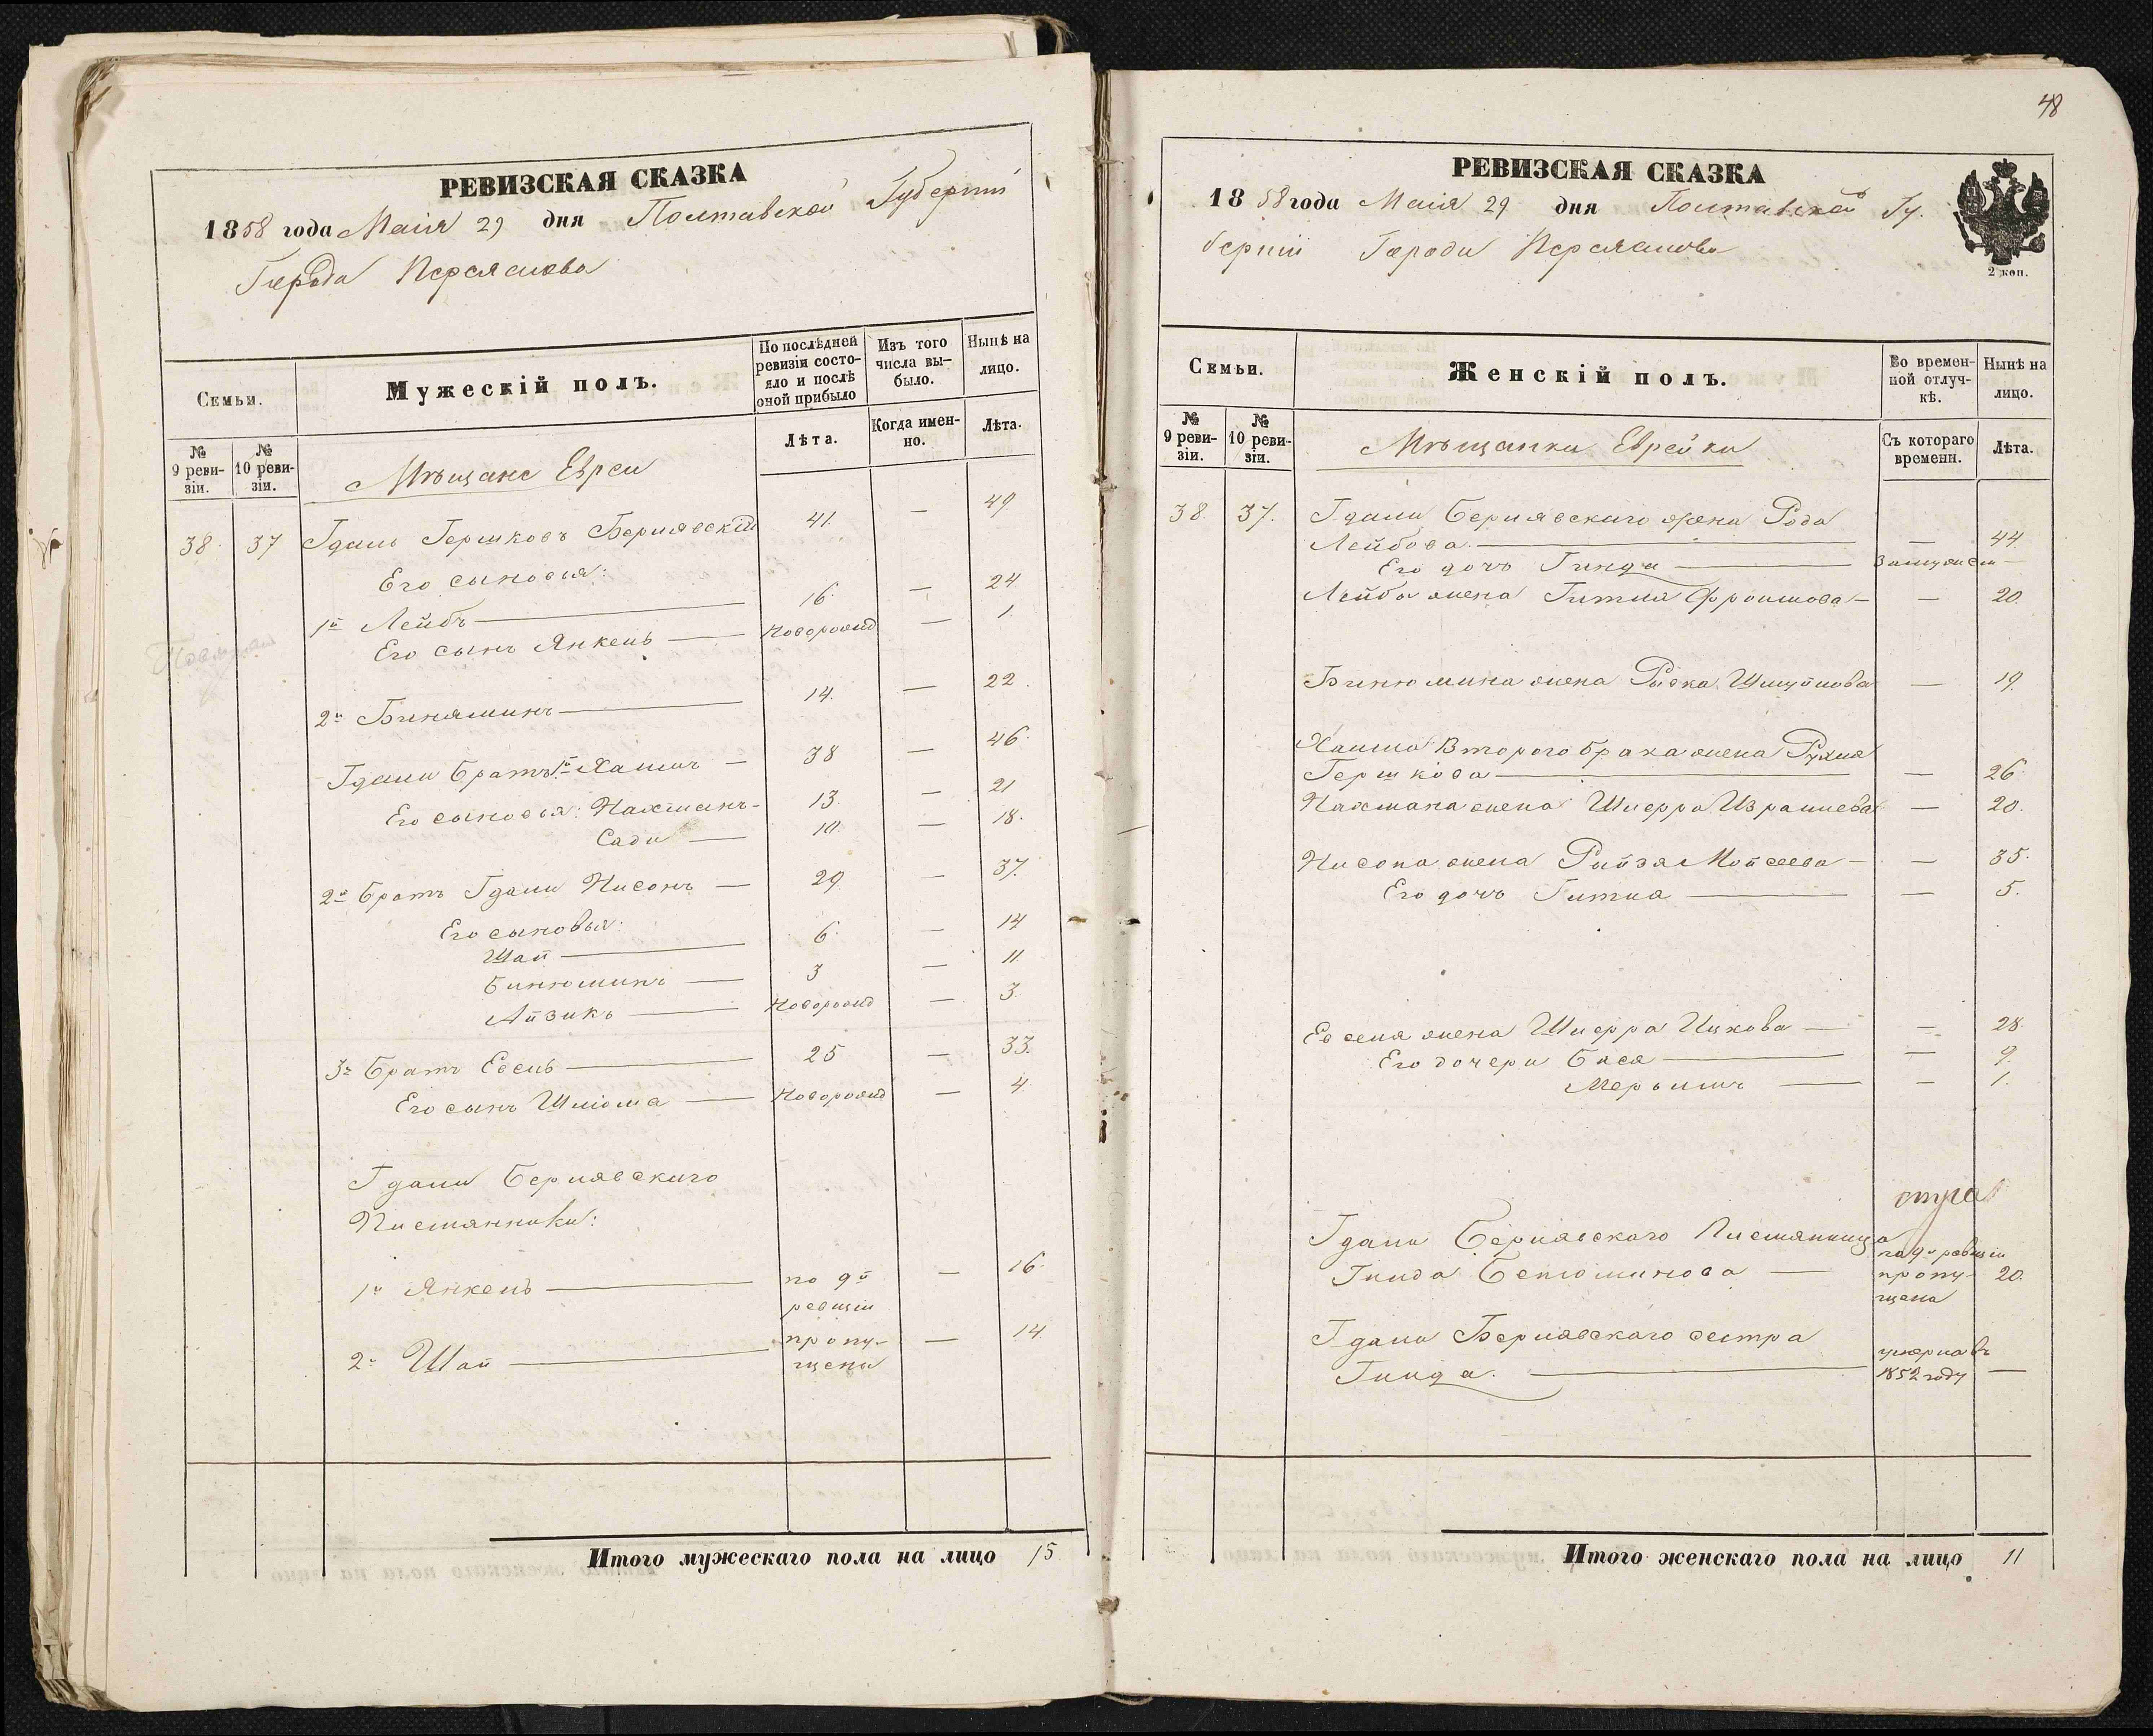 РЕВИЗСКАЯ СКАЗКА
1858 года Маія 29 дня Полтавской Губерніи
Города Переяслова
Семьи.
Мужескій полъ.
По последней ревизіи состояло и послѣ оной прибыло
Изъ того числа выбыло.
Нынѣ на лицо.
№ 9 ревизіи.
№ 10 ревизіи.
Мѣщане Евреи
Лѣта.
Когда именно.
Лѣта.
38 37 Гдаль Гершковъ Бернявскій 41. — 49
Его сыновья:
1й Лейбъ 16. — 24
Его сынъ Янкель новорожд — 1.
2й Бинямин 14. — 22.
Гдали братъ 1й Хаимъ — 38 — 46.
Его сыновья: Нахманъ 13. — 21
Сади 10. — 18.
2й братъ Гдали Нисонъ — 29 — 37.
Его сыновья:
Шая 6. — 14
Бинюминъ 3 — 11
Айзикъ новорожд — 3.
3й братъ Евсей 25 — 33.
Его сынъ Шліома новорожд — 4
Гдали Бернявскаго
Племянники:
1й Янкель по 9й — 16.
ревизіи
пропу-
2й Шая щены — 14.
Итого мужескаго пола на лицо 15
48
РЕВИЗСКАЯ СКАЗКА
1858 года Маія 29 дня Полтавской Гу-
берніи Города Переяслова
2 коп.
Семьи.
Женскій полъ.
Во временной отлучкѣ.
Нынѣ на лицо.
№ 9 ревизіи.
№ 10 ревизіи.
Мѣщанки Еврейки
Съ котораго времени.
Лѣта.
38. 37. Гдали Бернявскаго жена Рода
Лейбова — 44.
Его дочь Гинда замужем —
Лейба жена Гитля Фроимова — — 20.
Бинюмина жена Рывка Шмуйлова — 19.
Хаима второго брака жена Рухля
Гершкова — 26.
Нахмана жена Шперра Израилева — 20.
Нисона жена Рейзя Мойсеева — — 35.
Его дочь Гитля — 5.
Евсея жена Шперра Ицкова — — 28.
Его дочери Бася — 9.
Мерьимъ — 1.
Гдали Бернявскаго Племянница
по 9й ревизіи
Гинда Бенюминова — пропу- 20.
щена
Гдали Бернявскаго сестра
умерла въ
Гинда. 1852 году —
Итого женскаго пола на лицо 11